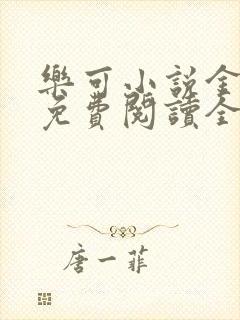 樂可小說全
免費閱讀全
唐一菲